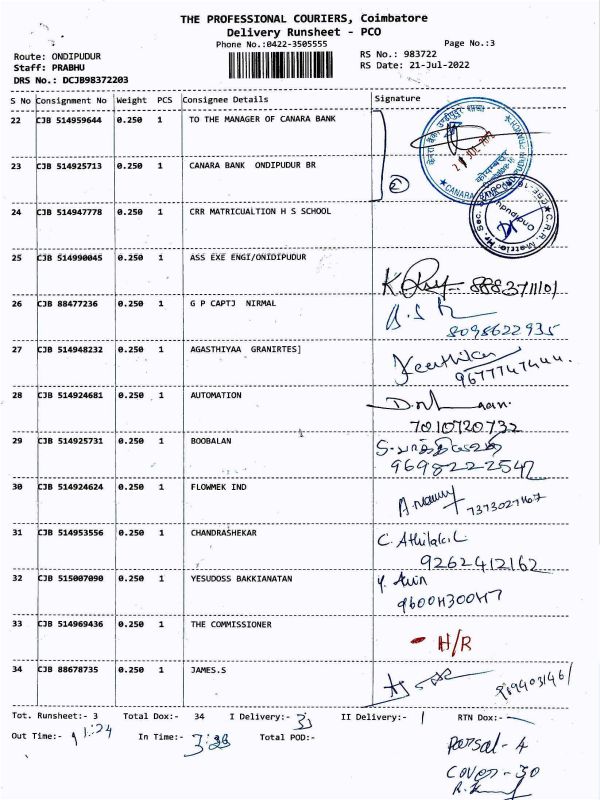 THE PROFESSIONAL COURIERS, Coimbatore
Delivery Runsheet - PCO
Phone No.:0422-3505555
Page No.:3
Route: ONDIPUDUR
RS No.: 983722
Staff: PRABHU
RS Date: 21-Jul-2022
DRS No.: DCJB98372203
S No Consignment No Weight PCS Consignee Details Signature
22 CJB 514959644 0.250 1 TO THE MANAGER OF CANARA BANK
23 CJB 514925713 0.250 1 CANARA BANK ONDIPUDUR BR
24 CJB 514947778 0.250 1 CRR MATRICUALTION H S SCHOOL
25 CJB 514990045 0.250 1 ASS EXE ENGI/ONIDIPUDUR
8883711101
26 CJB 88477236 0.250 1 G P CAPTJ NIRMAL
8098622935
27 CJB 514948232 0.250 1 AGASTHIYAA GRANIRTES]
Keerthika
9677747444
28 CJB 514924681 0.250 1 AUTOMATION
7010720732
29 CJB 514925731 0.250 1 BOOBALAN
9698222547
30 CJB 514924624 0.250 1 FLOWMEK IND
31 CJB 514953556 0.250 1 CHANDRASHEKAR
C. Athilak.C
9262412162
32 CJB 515007090 0.250 1 YESUDOSS BAKKIANATAN
33 CJB 514969436 0.250 1 THE COMMISSIONER
- H/R
34 CJB 88678735 0.250 1 JAMES.S
Tot. Runsheet:- 3 Total Dox:- 34 I Delivery:- II Delivery:- 1 RTN Dox:-
Out Time:- 11:24 In Time:- Total POD:-
Parsal - 4
Cover - 30